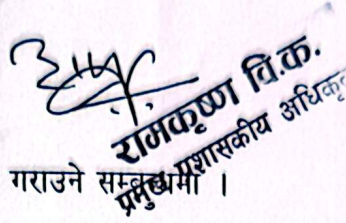 रामकृष्ण वि.क.
प्रमुख प्रशासकीय अधिकृत
गराउने सम्बन्धमा ।